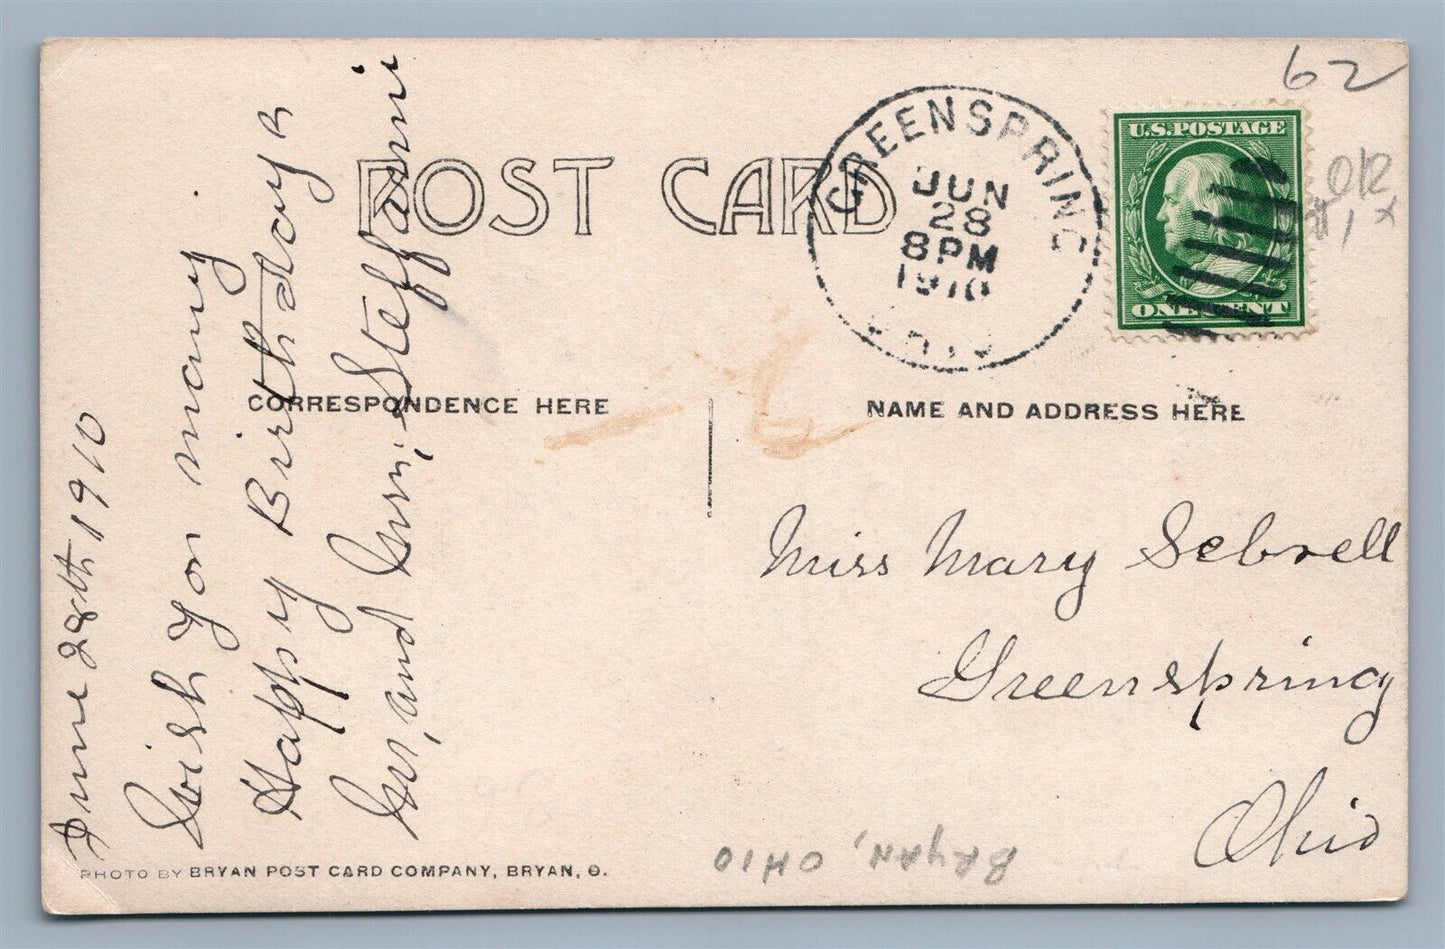 62
U.S. POSTAGE
ONE CENT
GREENSPRING
JUN
28
8 PM
1910
OHIO
POST CARD
CORRESPONDENCE HERE
NAME AND ADDRESS HERE
June 28th 1910
Wish you many
Happy Birthdays
Mr, and Mrs, Steffani
Miss Mary Sebrell
Greenspring
Ohio
BRYAN, OHIO
PHOTO BY BRYAN POST CARD COMPANY, BRYAN, O.